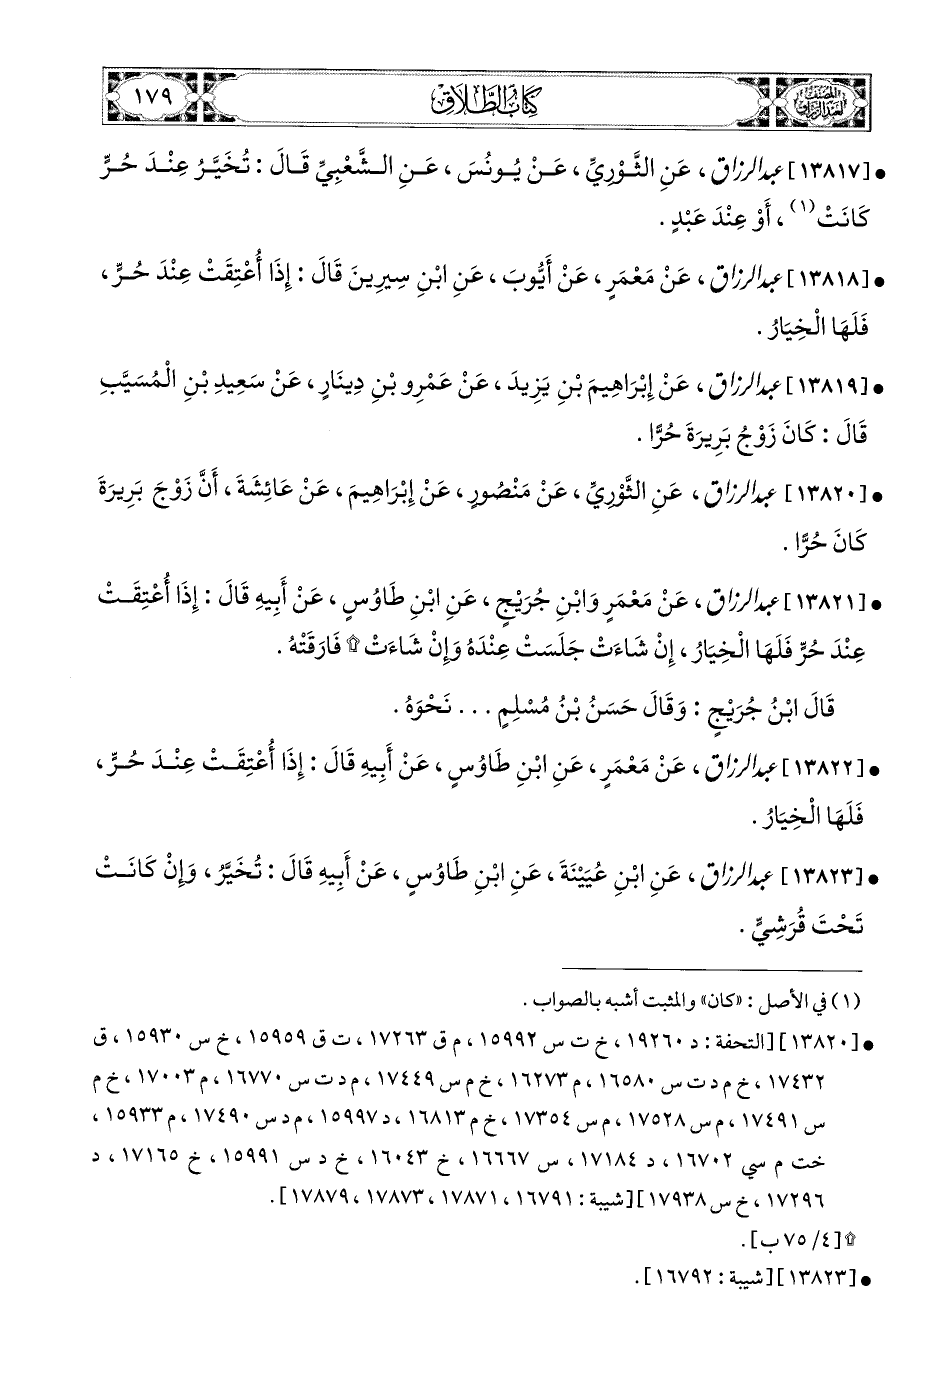 المصنف لعبد الرزاق كتاب الطلاق ١٧٩
• [١٣٨١٧] عبد الرزاق، عَنِ الثَّوْرِيِّ، عَنْ يُونُسَ، عَنِ الشَّعْبِيِّ قَالَ: تُخَيَّرُ عِنْدَ حُرٍّ
كَانَتْ(١)، أَوْ عِنْدَ عَبْدٍ.
• [١٣٨١٨] عبد الرزاق، عَنْ مَعْمَرٍ، عَنْ أَيُّوبَ، عَنِ ابْنِ سِيرِينَ قَالَ: إِذَا أُعْتِقَتْ عِنْدَ حُرٍّ،
فَلَهَا الْخِيَارُ.
• [١٣٨١٩] عبد الرزاق، عَنْ إِبْرَاهِيمَ بْنِ يَزِيدَ، عَنْ عَمْرِو بْنِ دِينَارٍ، عَنْ سَعِيدِ بْنِ الْمُسَيَّبِ
قَالَ: كَانَ زَوْجُ بَرِيرَةَ حُرًّا.
• [١٣٨٢٠] عبد الرزاق، عَنِ الثَّوْرِيِّ، عَنْ مَنْصُورٍ، عَنْ إِبْرَاهِيمَ، عَنْ عَائِشَةَ، أَنَّ زَوْجَ بَرِيرَةَ
كَانَ حُرًّا.
• [١٣٨٢١] عبد الرزاق، عَنْ مَعْمَرٍ وَابْنِ جُرَيْجٍ، عَنِ ابْنِ طَاوُسٍ، عَنْ أَبِيهِ قَالَ: إِذَا أُعْتِقَتْ
عِنْدَ حُرٍّ فَلَهَا الْخِيَارُ، إِنْ شَاءَتْ جَلَسَتْ عِنْدَهُ وَإِنْ شَاءَتْ ۩ فَارَقَتْهُ.
قَالَ ابْنُ جُرَيْجٍ: وَقَالَ حَسَنُ بْنُ مُسْلِمٍ ... نَحْوَهُ.
• [١٣٨٢٢] عبد الرزاق، عَنْ مَعْمَرٍ، عَنِ ابْنِ طَاوُسٍ، عَنْ أَبِيهِ قَالَ: إِذَا أُعْتِقَتْ عِنْدَ حُرٍّ،
فَلَهَا الْخِيَارُ.
• [١٣٨٢٣] عبد الرزاق، عَنِ ابْنِ عُيَيْنَةَ، عَنِ ابْنِ طَاوُسٍ، عَنْ أَبِيهِ قَالَ: تُخَيَّرُ، وَإِنْ كَانَتْ
تَحْتَ قُرَشِيٍّ.
(١) في الأصل: «كان» والمثبت أشبه بالصواب.
• [١٣٨٢٠] [التحفة: د ١٩٢٦٠، خ ت س ١٥٩٩٢، م ق ١٧٢٦٣، ت ق ١٥٩٥٩، خ س ١٥٩٣٠، ق
١٧٤٣٢، خ م د ت س ١٦٥٨٠، م ١٦٢٧٣، خ م س ١٧٤٤٩، م د ت س ١٦٧٧٠، م ١٧٠٠٣، خ م
س ١٧٤٩١، م س ١٧٥٢٨، م س ١٧٣٥٤، خ م ١٦٨١٣، د ١٥٩٩٧، م د س ١٧٤٩٠، م ١٥٩٣٣،
خت م سي ١٦٧٠٢، د ١٧١٨٤، س ١٦٦٦٧، خ ١٦٠٤٣، خ د س ١٥٩٩١، خ ١٧١٦٥، د
١٧٢٩٦، خ س ١٧٩٣٨] [شيبة: ١٦٧٩١، ١٧٨٧١، ١٧٨٧٣، ١٧٨٧٩].
۩ [٤/ ٧٥ ب].
• [١٣٨٢٣] [شيبة: ١٦٧٩٢].